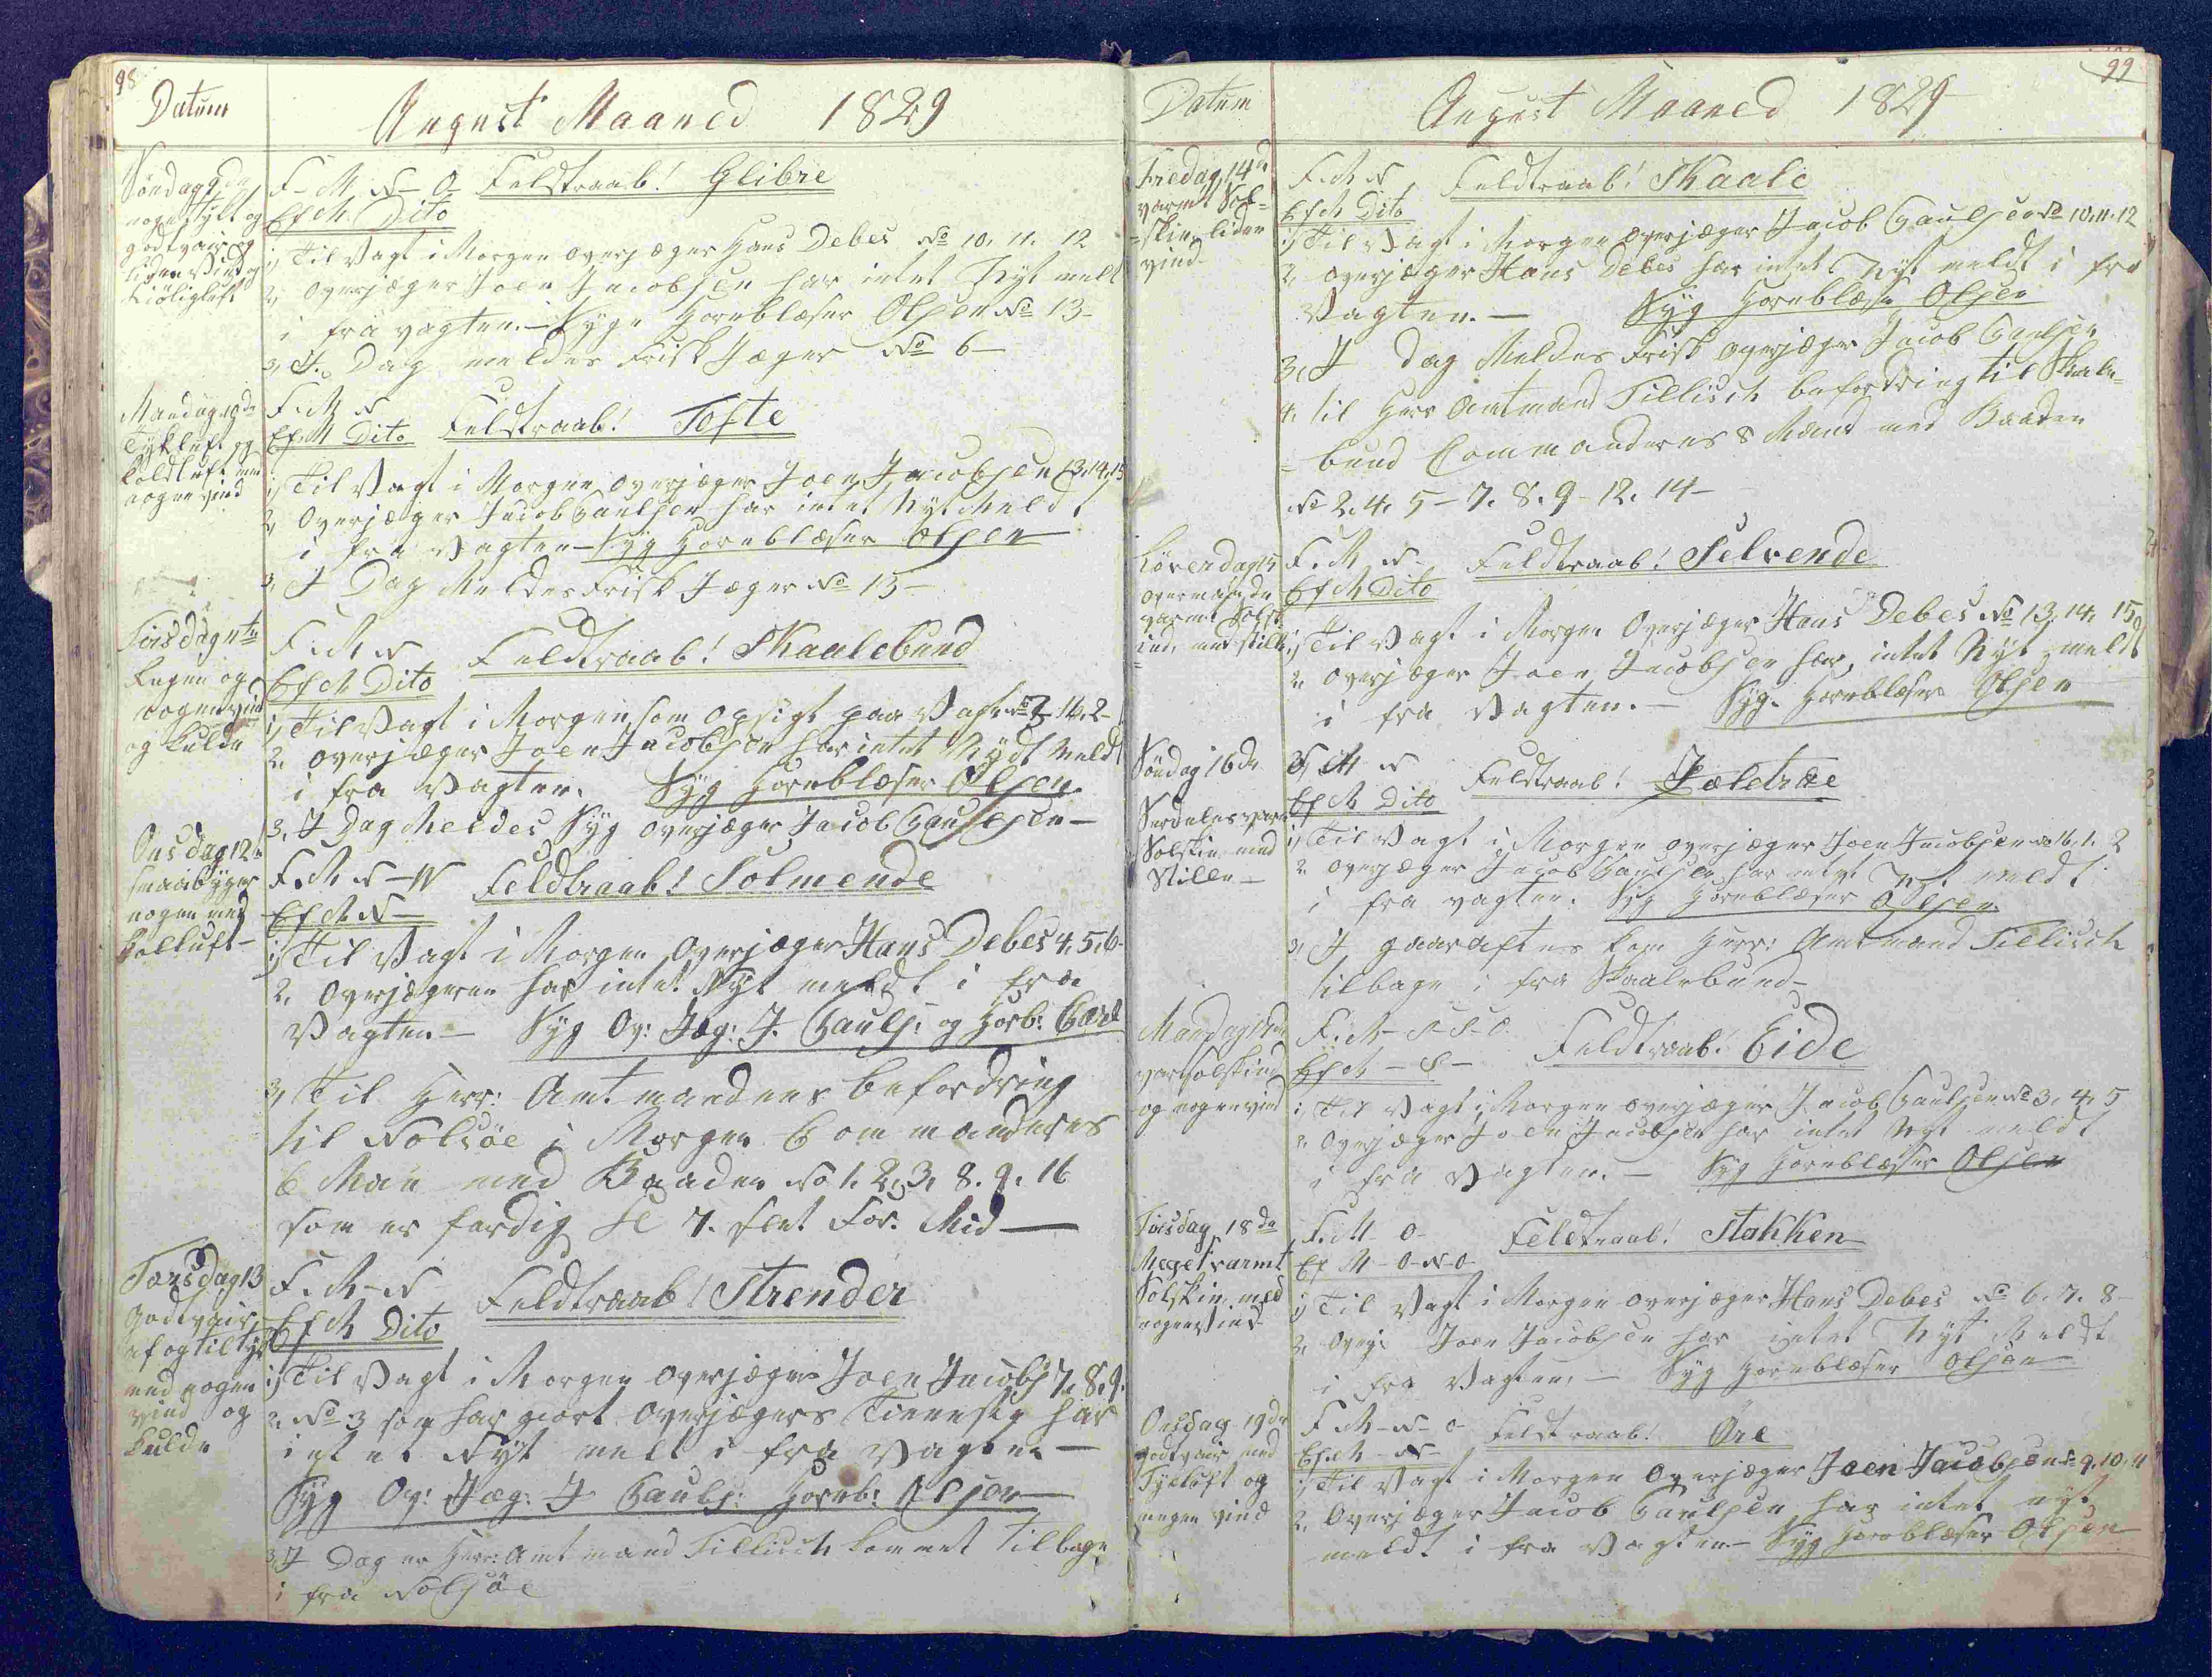 98
Datum
August Maaned 1829
Søndag 9de
noget tykt og
godtvair og
liden Vind og
kiöligluft
F-M. N-O- Feldtraab! Glibre
Ef M. Dito
1, Til Vagt i Morgen overjæger Hans Debes No 10. 11. 12
2, overjæger Joen Jacobsen har intet Nyt melt
i fra vagten.- Syge Hornblæser Olsen No 13-
3, I. Dag meldes Frisk Jæger No 6-
Mandag 10de
Tykluft og
koldluft men
nogen vind
F. M N
Ef. M Dito Feldtraab! Tofte
1, Til Vagt i Morgen overjæger Joen Jacobsen 13. 14. 15
2, Overjæger Jacob Paulsen har intet Nyt Meldt
i fra Vagten- Syg Hornblæser Olsen
3, I Dag Meldes Frisk Jæger No 13-
Tirsdag 11te
Regen og
nogen vind
og kulde
F. M N Feldtraab! Skaalebund
Ef M Dito
1, Til Vagt i Morgen, som opsigt paa Vagt No 3- 16. 2-
2, overjæger Joen Jacobsen har intet Nydt Meldt
i fra Vagten. Syg Hornblæser Olsen
3, I Dag Meldes Syg overjæger Jacob Paulsen-
Onsdag 12te
smaabyger
nogen med
kolluft-
F. M N-W Feldtraab! Solmende
Ef M. N-
1, Til Vagt i Morgen Overjæger Hans Debes 4. 5. 6-
2, Overjægeren har intet Nyt meldt i fra
Vagten.- Syg Ov: Jæg: J. Pauls: og Horb:
3, Til Herr: Amtmandens befordring
til Nolsöe i Morgen Commanderes
6 Man med Baaden No 1. 2. 3. 8. 9. 16
som er færdig Kl 7. slet For. Mid-
Torsdag 13
godtvair
af og til tyk
med nogen
vind og
kulde
F. M-N Feldtraab! Strender
Ef M Dito
1, Til Vagt i Morgen overjæger Joen Jacobs 7. 8. 9.
2, No 3 som har giort overjægers Tieneste har
intet Nyt melt i fra Vagten-
Syg Ov: Jæg: J Pauls: Hornb: Olsen
3, I Dag er Herr: Amtmand Tillisch kommet tilbage
i fra Nolsöe
99
Datum
August Maaned 1829
Fredag 14de
varmt Sol=
=skin liden
vind
F. M N Feldtraab! Skaale
Ef M Dito
1, Til Vagt i Morgen overjæger Jacob Paulsen No 10. 11. 12
2, overjæger Hans Debes har intet Nyt meldt i fra
Vagten.- Syg Hornblæser Olsen
3, I dag Meldes Frisk overjæger Jacob Paulsen
4, til Herr Amtmand Tillisch befordring til Skaale=
=bund Commanderes 8 Mand med Baaden
No 2. 4. 5- 7. 8. 9- 12. 14-
Löverdag 15
overmaade
varmt Solsk
ind, med stille
F. M N- Feldtraab! Selvende
Ef M Dito
1, Til Vagt i Morgen Overjæger Hans Debes No 13. 14. 15
2, overjæger Joen Jacobsen har, intet Nyt meldt
i fra Vagten.- Syg. Hornblæser Olsen
Söndag 16de
Serdeles varm
Solskin med
Stille-
F. M N Feldtraab! Sældtræ
Ef M Dito
1, Til Vagt i Morgen overjæger Joen Jacobsen No 16. 1. 2
2, overjæger Jacob Paulsen har intet Nyt meldt
i fra vagten. Syg Hornblæser Olsen
3, I gaaraftes kom Herr: Amtmand Tillisch
tilbage i fra Skaalebund-
Mandag 17de
varsolskind
og nogen vind
F. M- S-S-O- Feldtraab! Eide
Ef M - S-
1, Til Vagt i Morgen overjæger Jacob Paulsen No 3. 4. 5
2, Overjæger Joen Jacobsen har intet Nyt meldt
i fra Vagten.- Syg Hornblæser Olsen
Tirsdag 18de
Meget varmt
Solskin med
nogen Vind
F. M- O- Feldtraab. Stakken
Ef M- O-N-O
1, Til Vagt i Morgen overjæger Hans Debes No 6. 7. 8-
2, overj: Joen Jacobsen har intet Nyt Meldt
i fra Vagten.- Syg Hornblæser Olsen
Onsdag 19de
godtvair med
Tykluft og
megen vind
F M-N-O Feldtraab! Öre
Ef M- N-
1, Til Vagt i Morgen Overjæger Joen Jacobsen No 9. 10. 11
2, Overjæger Jacob Paulsen har intet nyt
meldt i fra Vagten- Syg Hornblæser Olsen